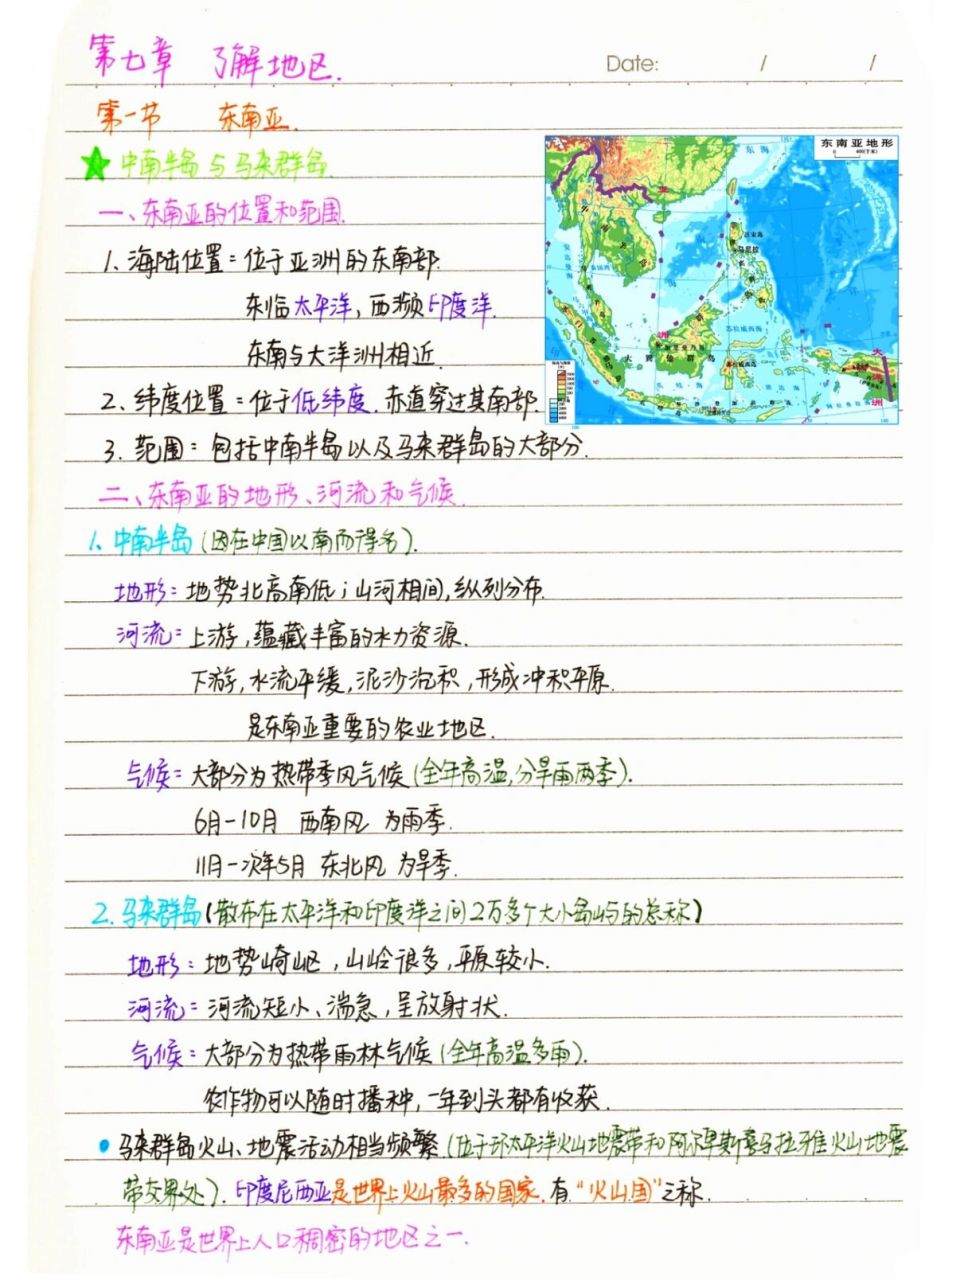 第七章 了解地区.
Date: / /
第一节 东南亚.
中南半岛与马来群岛
一、东南亚的位置和范围.
东南亚地形
1、海陆位置：位于亚洲的东南部.
东临太平洋，西濒印度洋.
东南与大洋洲相近.
2、纬度位置：位于低纬度.赤道穿过其南部.
3.范围：包括中南半岛以及马来群岛的大部分.
二、东南亚的地形、河流和气候.
1、中南半岛(因在中国以南而得名).
地形：地势北高南低；山河相间,纵列分布.
河流：上游,蕴藏丰富的水力资源.
下游,水流平缓,泥沙沉积,形成冲积平原.
是东南亚重要的农业地区.
气候：大部分为热带季风气候(全年高温,分旱雨两季).
6月-10月 西南风 为雨季.
11月-次年5月 东北风 为旱季.
2.马来群岛(散布在太平洋和印度洋之间2万多个大小岛屿的总称)
地形：地势崎岖,山岭很多,平原较小.
河流：河流短小、湍急,呈放射状.
气候：大部分为热带雨林气候(全年高温多雨).
农作物可以随时播种,一年到头都有收获.
•马来群岛火山、地震活动相当频繁(位于环太平洋火山地震带和阿尔卑斯喜马拉雅火山地震
带交界处).印度尼西亚是世界上火山最多的国家.有“火山国”之称.
东南亚是世界上人口稠密的地区之一.